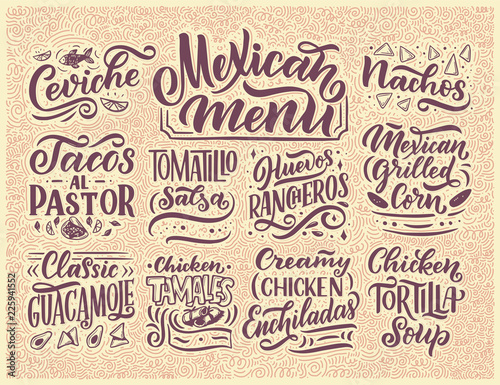 Ceviche
Mexican
Menu
Nachos
Tacos
AL
PASTOR
TOMATILLO
Salsa
Huevos
RANCHEROS
Mexican
Grilled
Corn
Classic
GUACAMOLE
Chicken
TAMALES
Creamy
CHICKEN
Enchiladas
Chicken
TORTILLA
Soup
Adobe Stock | #225941552